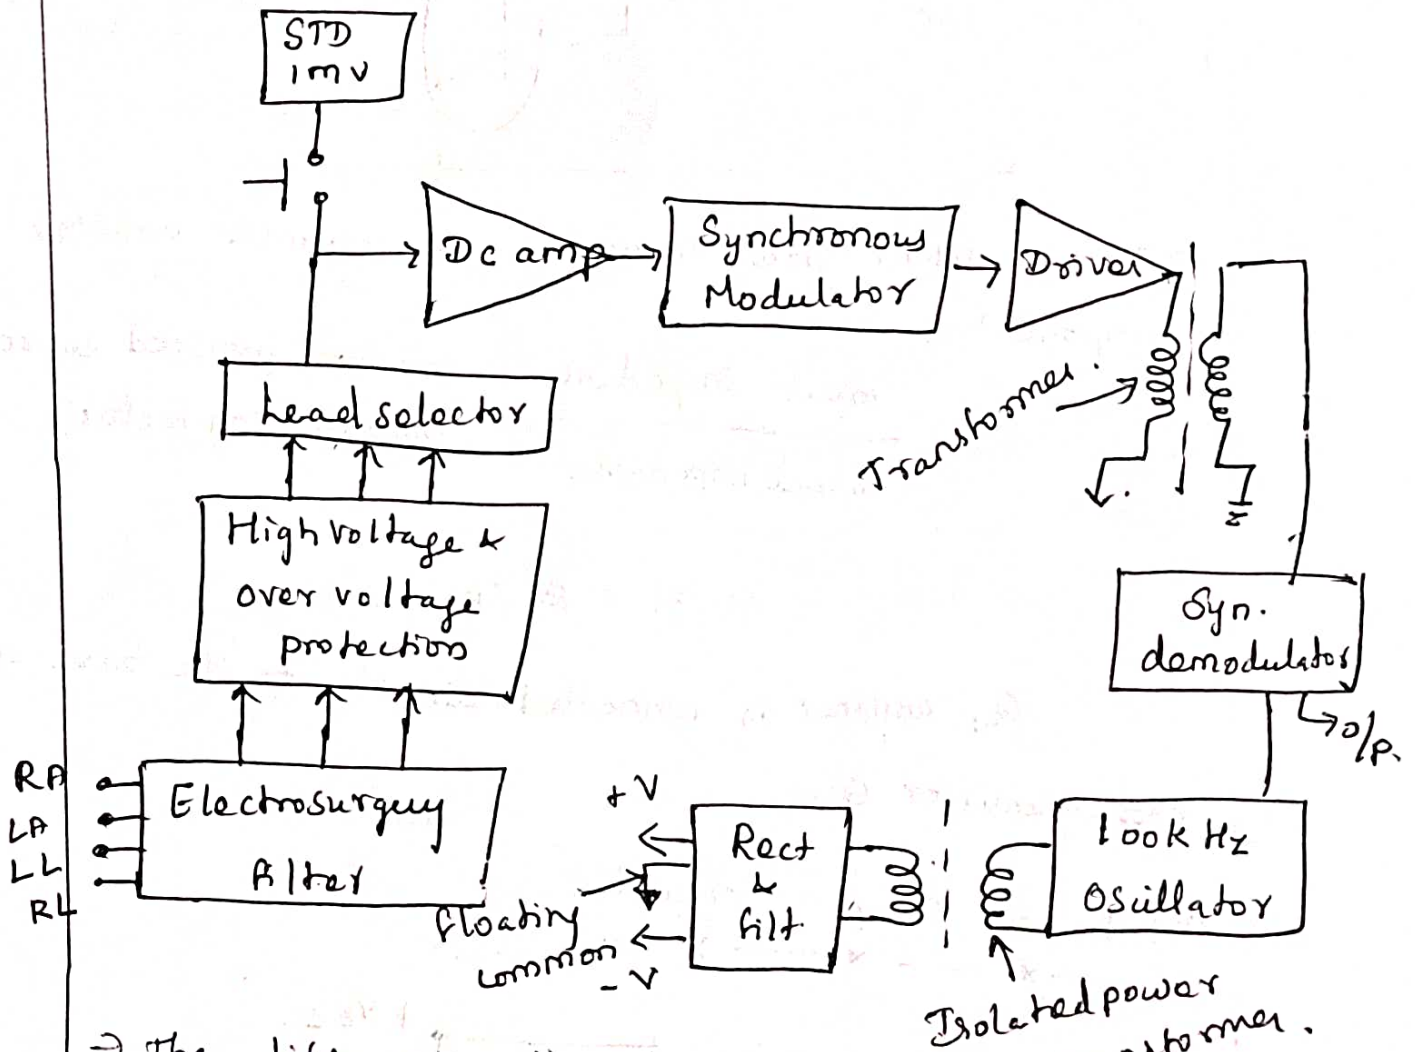 STD
1mv
Dc amp
Synchronous
Modulator
Driver
Transformer.
Lead selector
High voltage &
over voltage
protection
Syn.
demodulator
O/P.
RA
LA
LL
RL
Electrosurguy
filter
+V
Rect
&
filt
floating
common
-V
100kHz
Oscillator
Isolated power